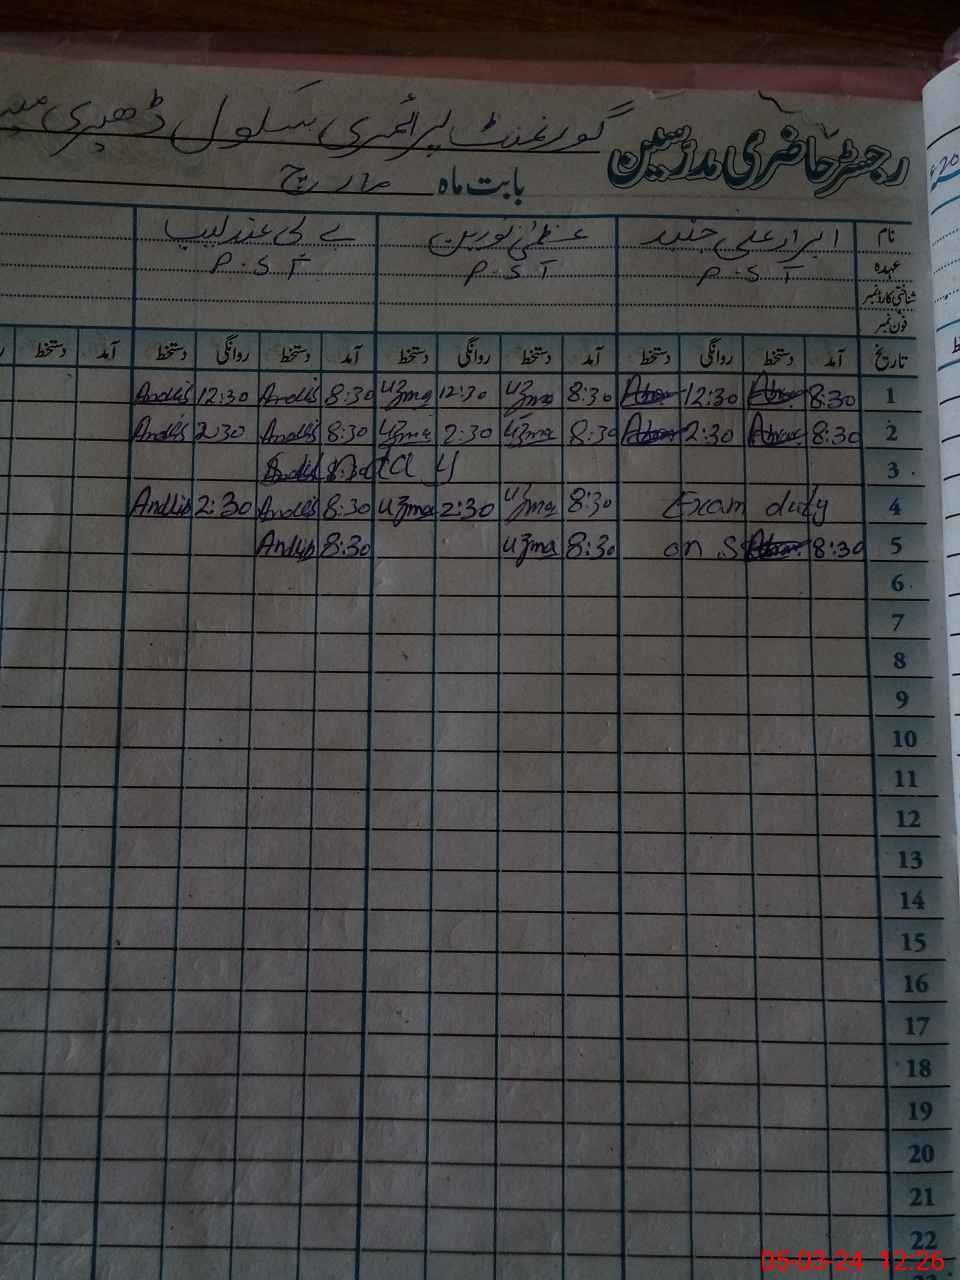 رجسٹر حاضری مدرسین گورنمنٹ پرائمری سکول ڈھیری
بابت ماہ مارچ
نام ابرار علی عظمیٰ نورین بے بی عندلیب
عہدہ P.S.T P.S.T P.S.T
شناختی کارڈ نمبر
فون نمبر
تاریخ آمد دستخط روانگی دستخط آمد دستخط روانگی دستخط آمد دستخط روانگی دستخط آمد دستخط
1 8:30 12:30 8:30 Uzma 12:30 Uzma 8:30 Andlib 12:30 Andlib
2 8:30 2:30 8:30 Uzma 2:30 Uzma 8:30 Andlib 2:30 Andlib
3
4 Exam duty 8:30 Uzma 2:30 Uzma 8:30 Andlib 2:30 Andlib
5 8:30 on 8:30 Uzma 8:30 Andlib
6
7
8
9
10
11
12
13
14
15
16
17
18
19
20
21
22
05-03-24 12:26